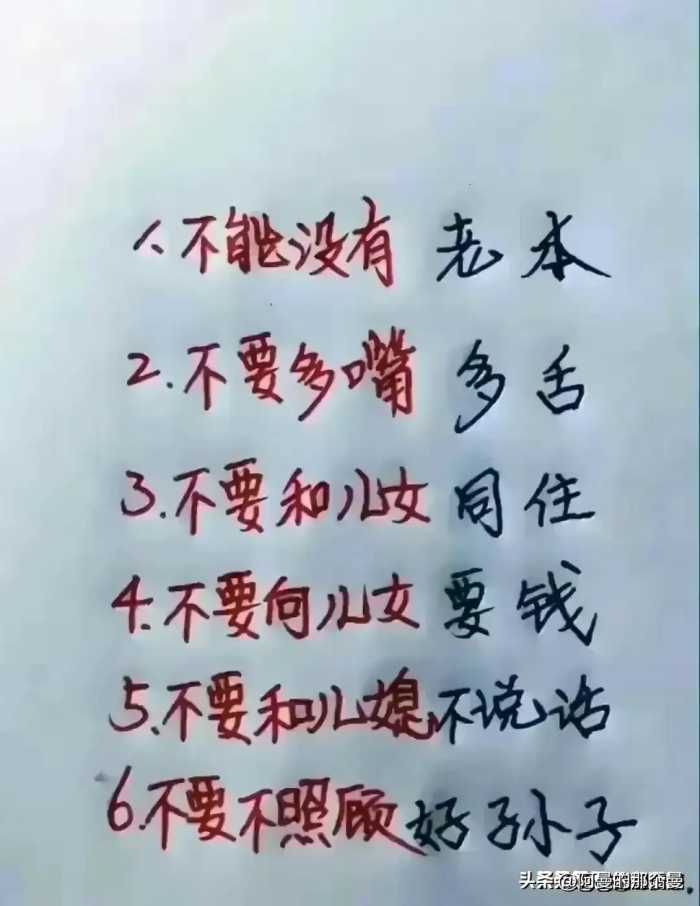 1、不能没有 老本
2.不要多嘴 多舌
3.不要和儿女 同住
4.不要向儿女 要钱
5.不要和儿媳不说话
6.不要不照顾好子小子
头条 @阿曼的那朵曼